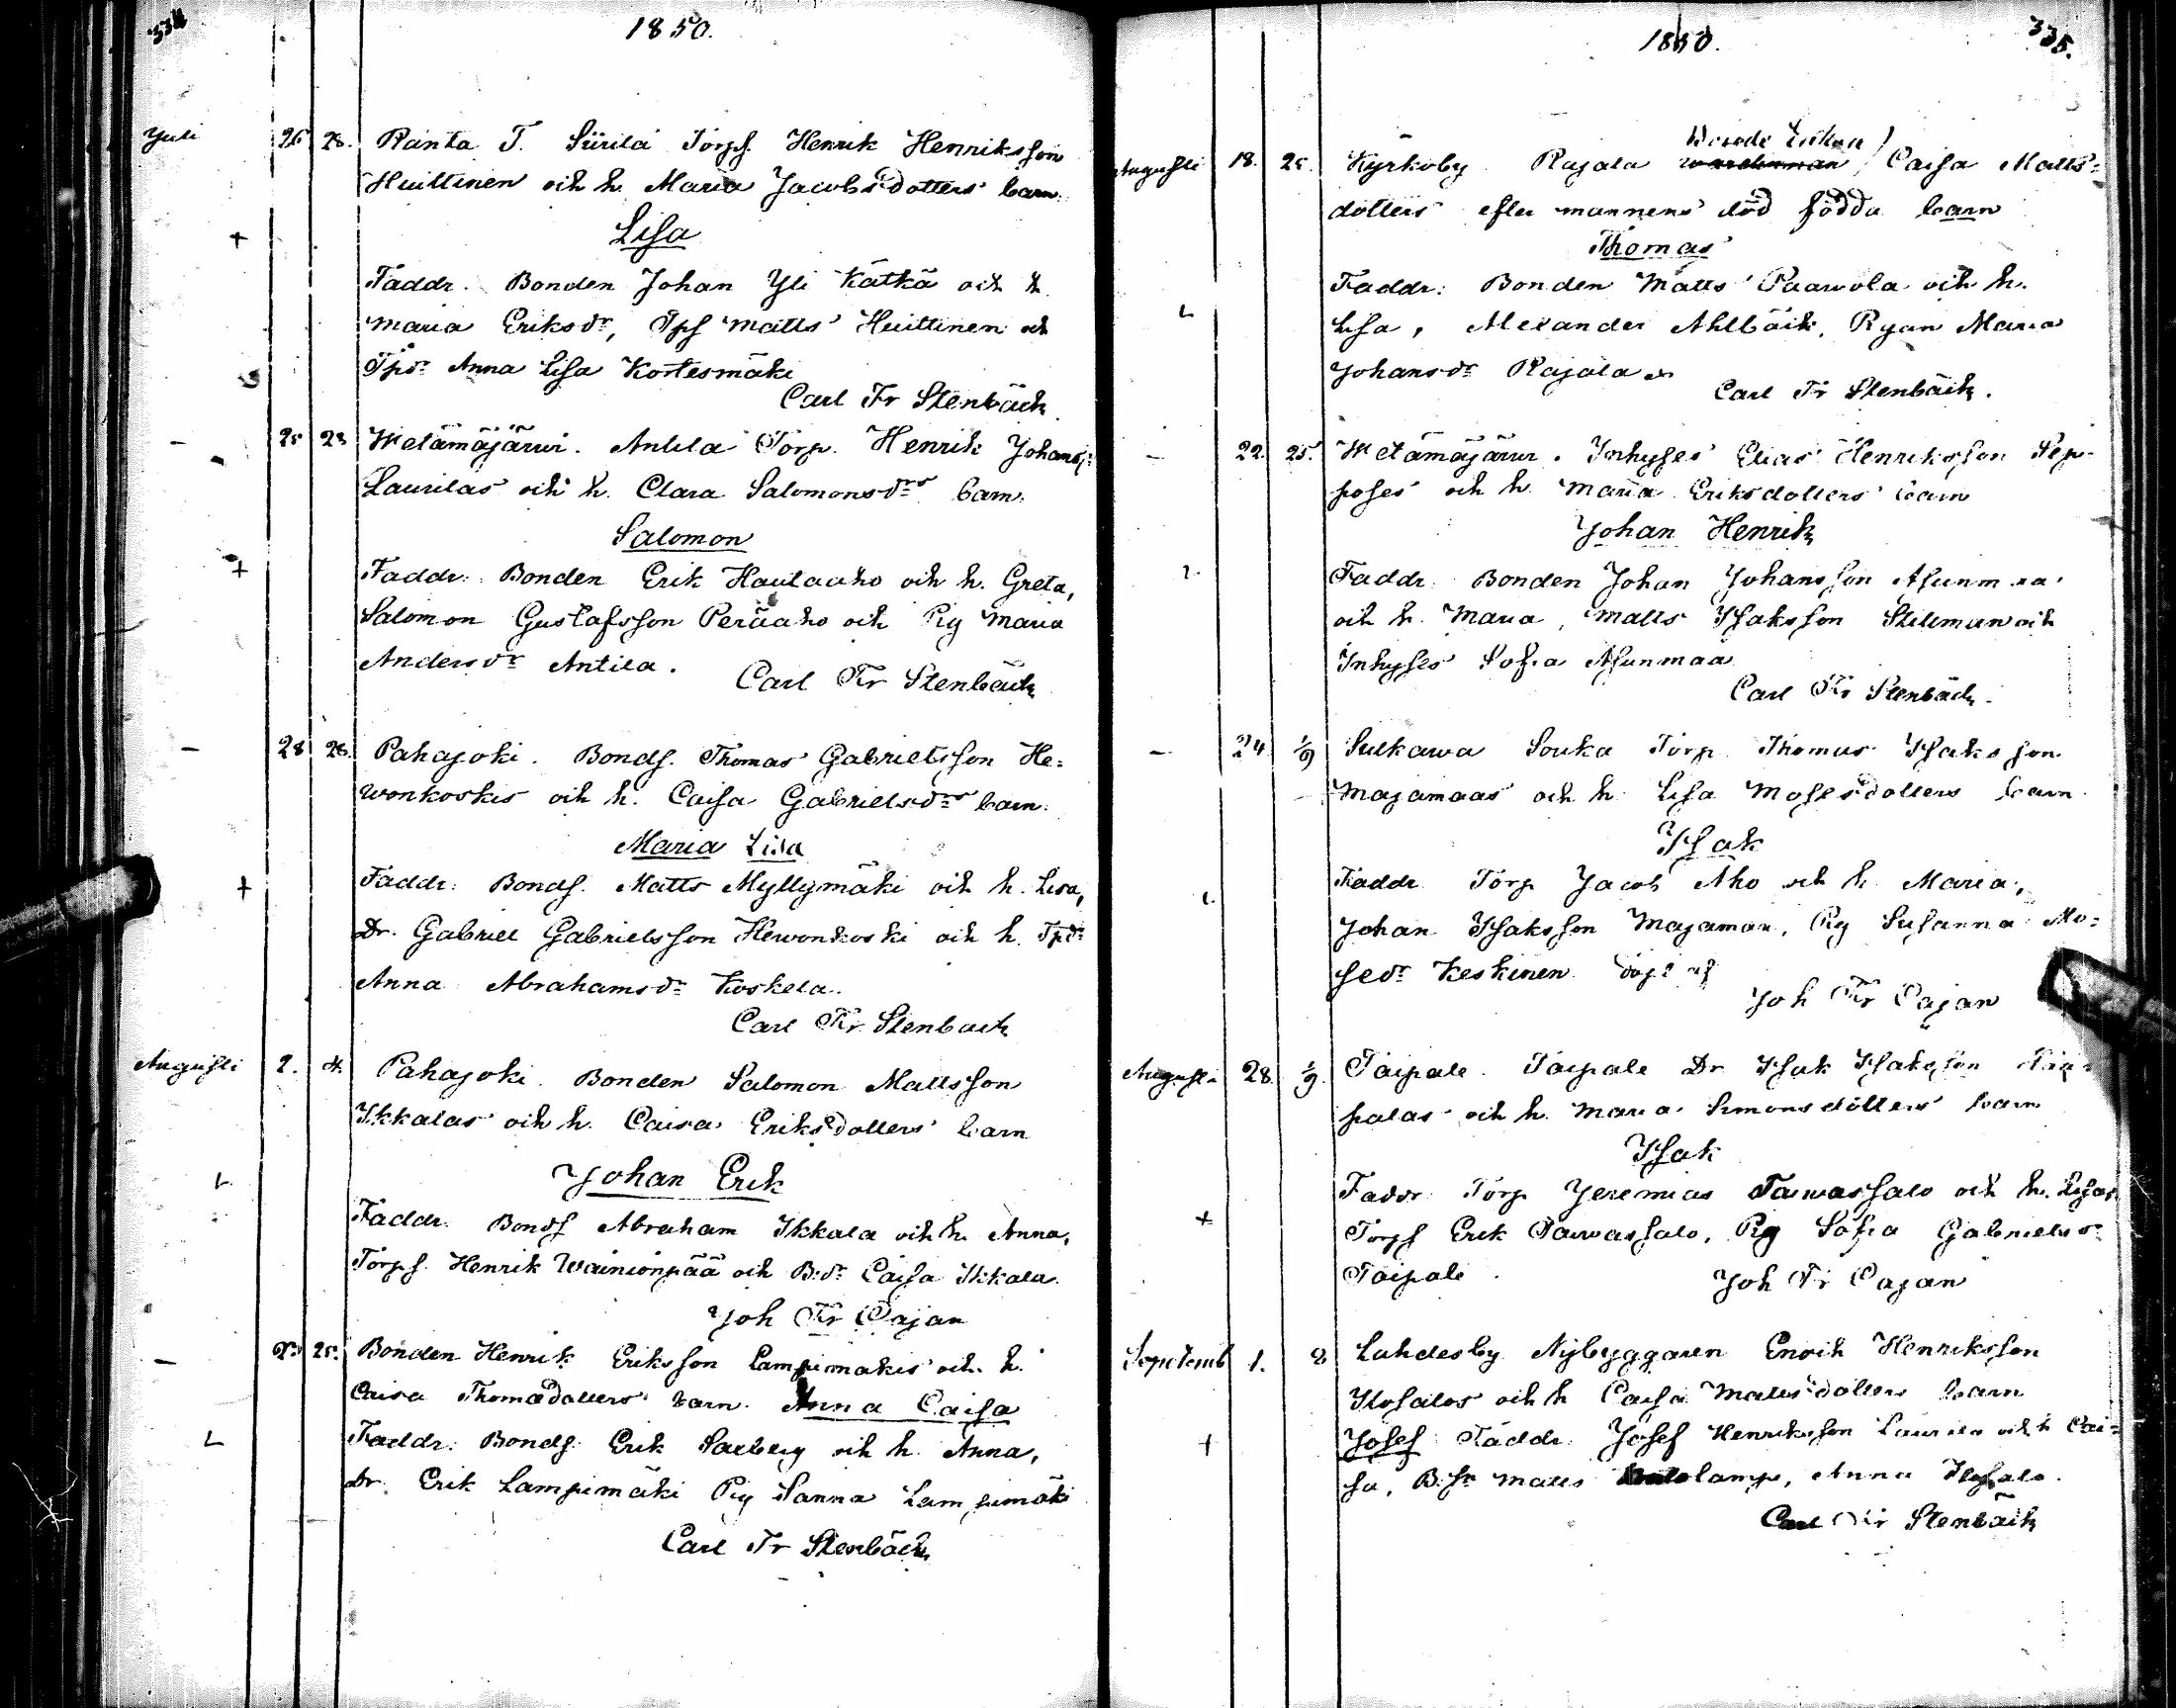 334
1850.
Juli 26 28. Ranta T. Siirilä Torpf. Henrik Henriksson
Huittinen och h. Maria Jacobsdotters barn
Lisa
+
Faddr. Bonden Johan Yli Kätkä och h.
Maria Eriksdr, Tpf Matts Huittinen och
Tpdr Anna Lisa Kortesmäki
Carl Fr Stenbäck
- 25 28 Metämäjärwi. Antila Torp. Henrik Johanss:
Laurilas och h. Clara Salomonsdrs barn.
Salomon
+
Faddr: Bonden Erik Hautaaho och h. Greta,
Salomon Gustafsson Perääho och Pig Maria
Andersdr Antila.
Carl Fr Stenbäck
- 28 28. Pahajoki. Bondf. Thomas Gabrielsson He=
wonkoskis och h. Caisa Gabrielsdrs barn.
Maria Lisa
+
Faddr: Bondf. Matts Myllymäki och h. Lisa,
Dr. Gabriel Gabrielsson Hewonkoski och h. Tpdr
Anna Abrahamsdr Koskela.
Carl Fr. Stenback
Augusti 2. 4. Pahajoki. Bonden Salomon Mattsson
Ikkalas och h. Caisa Eriksdotters barn
Johan Erik
Faddr. Bondf Abraham Ikkala och h. Anna,
Torpf. Henrik Wäinionpää och B:dr Caisa Ikkala.
Joh Fr Cajan
- 25. Bonden Henrik Eriksson Lampimäkis och h.
Caisa Thomadotters barn. Anna Caisa
Faddr: Bondf. Erik Saxberg och h. Anna,
Dr. Erik Lampimäki Pig Sanna Lampimäki
Carl Fr Stenbäck
335.
1850.
Enkan
Augusti 18. 25. Kyrkoby Rajala Caisa Matts=
dotters efter mannens död födda barn
Thomas
Faddr: Bonden Matts Paawola och h.
Lisa, Alexander Ahlbäck, Pigan Maria
Johansdr Rajala
Carl Fr Stenbäck.
- 22. 25. Metämäjärwi. Inhyses Elias Henriksson Sep-
poses och h. Maria Eriksdotters barn
Johan Henrik
Faddr. Bonden Johan Johansson Asunmaa
och h. Maria, Matts Isaksson Stileman och
Inhyses Sofia Asunmaa
Carl Fr Stenbäck.
- 24 1/9 Sulkawa Souka Torp. Thomas Isaksson
Majamaas och h. Lisa Mosesdotters barn.
Isak
Faddr. Torp Jacob Aho och h. Maria,
Johan Isaksson Majamaa, Pig Susanna Mo=
sesdr Keskinen.
Joh Fr Cajan
Augusti 28. 1/9. Taipale. Taipale Dr Isak Isaksson Tai=
palas och h. Maria Simonsdotters barn
Isak
+
Faddr. Torp Jeremias Tawassalo och h. Lisa
Torpf Erik Tawassalo, Pig Sofia Gabrielsdr
Taipale.
Joh Fr Cajan
Septemb 1. 8 Luhdesby Nybyggaren Henriksson
Ilosalos och h Caisa Mattsdotters barn
+
Josef Faddr. Josef Henriksson Laurila och h Cai=
sa, B.sn Matts Anna Ilosalo.
Carl Fr Stenbäck